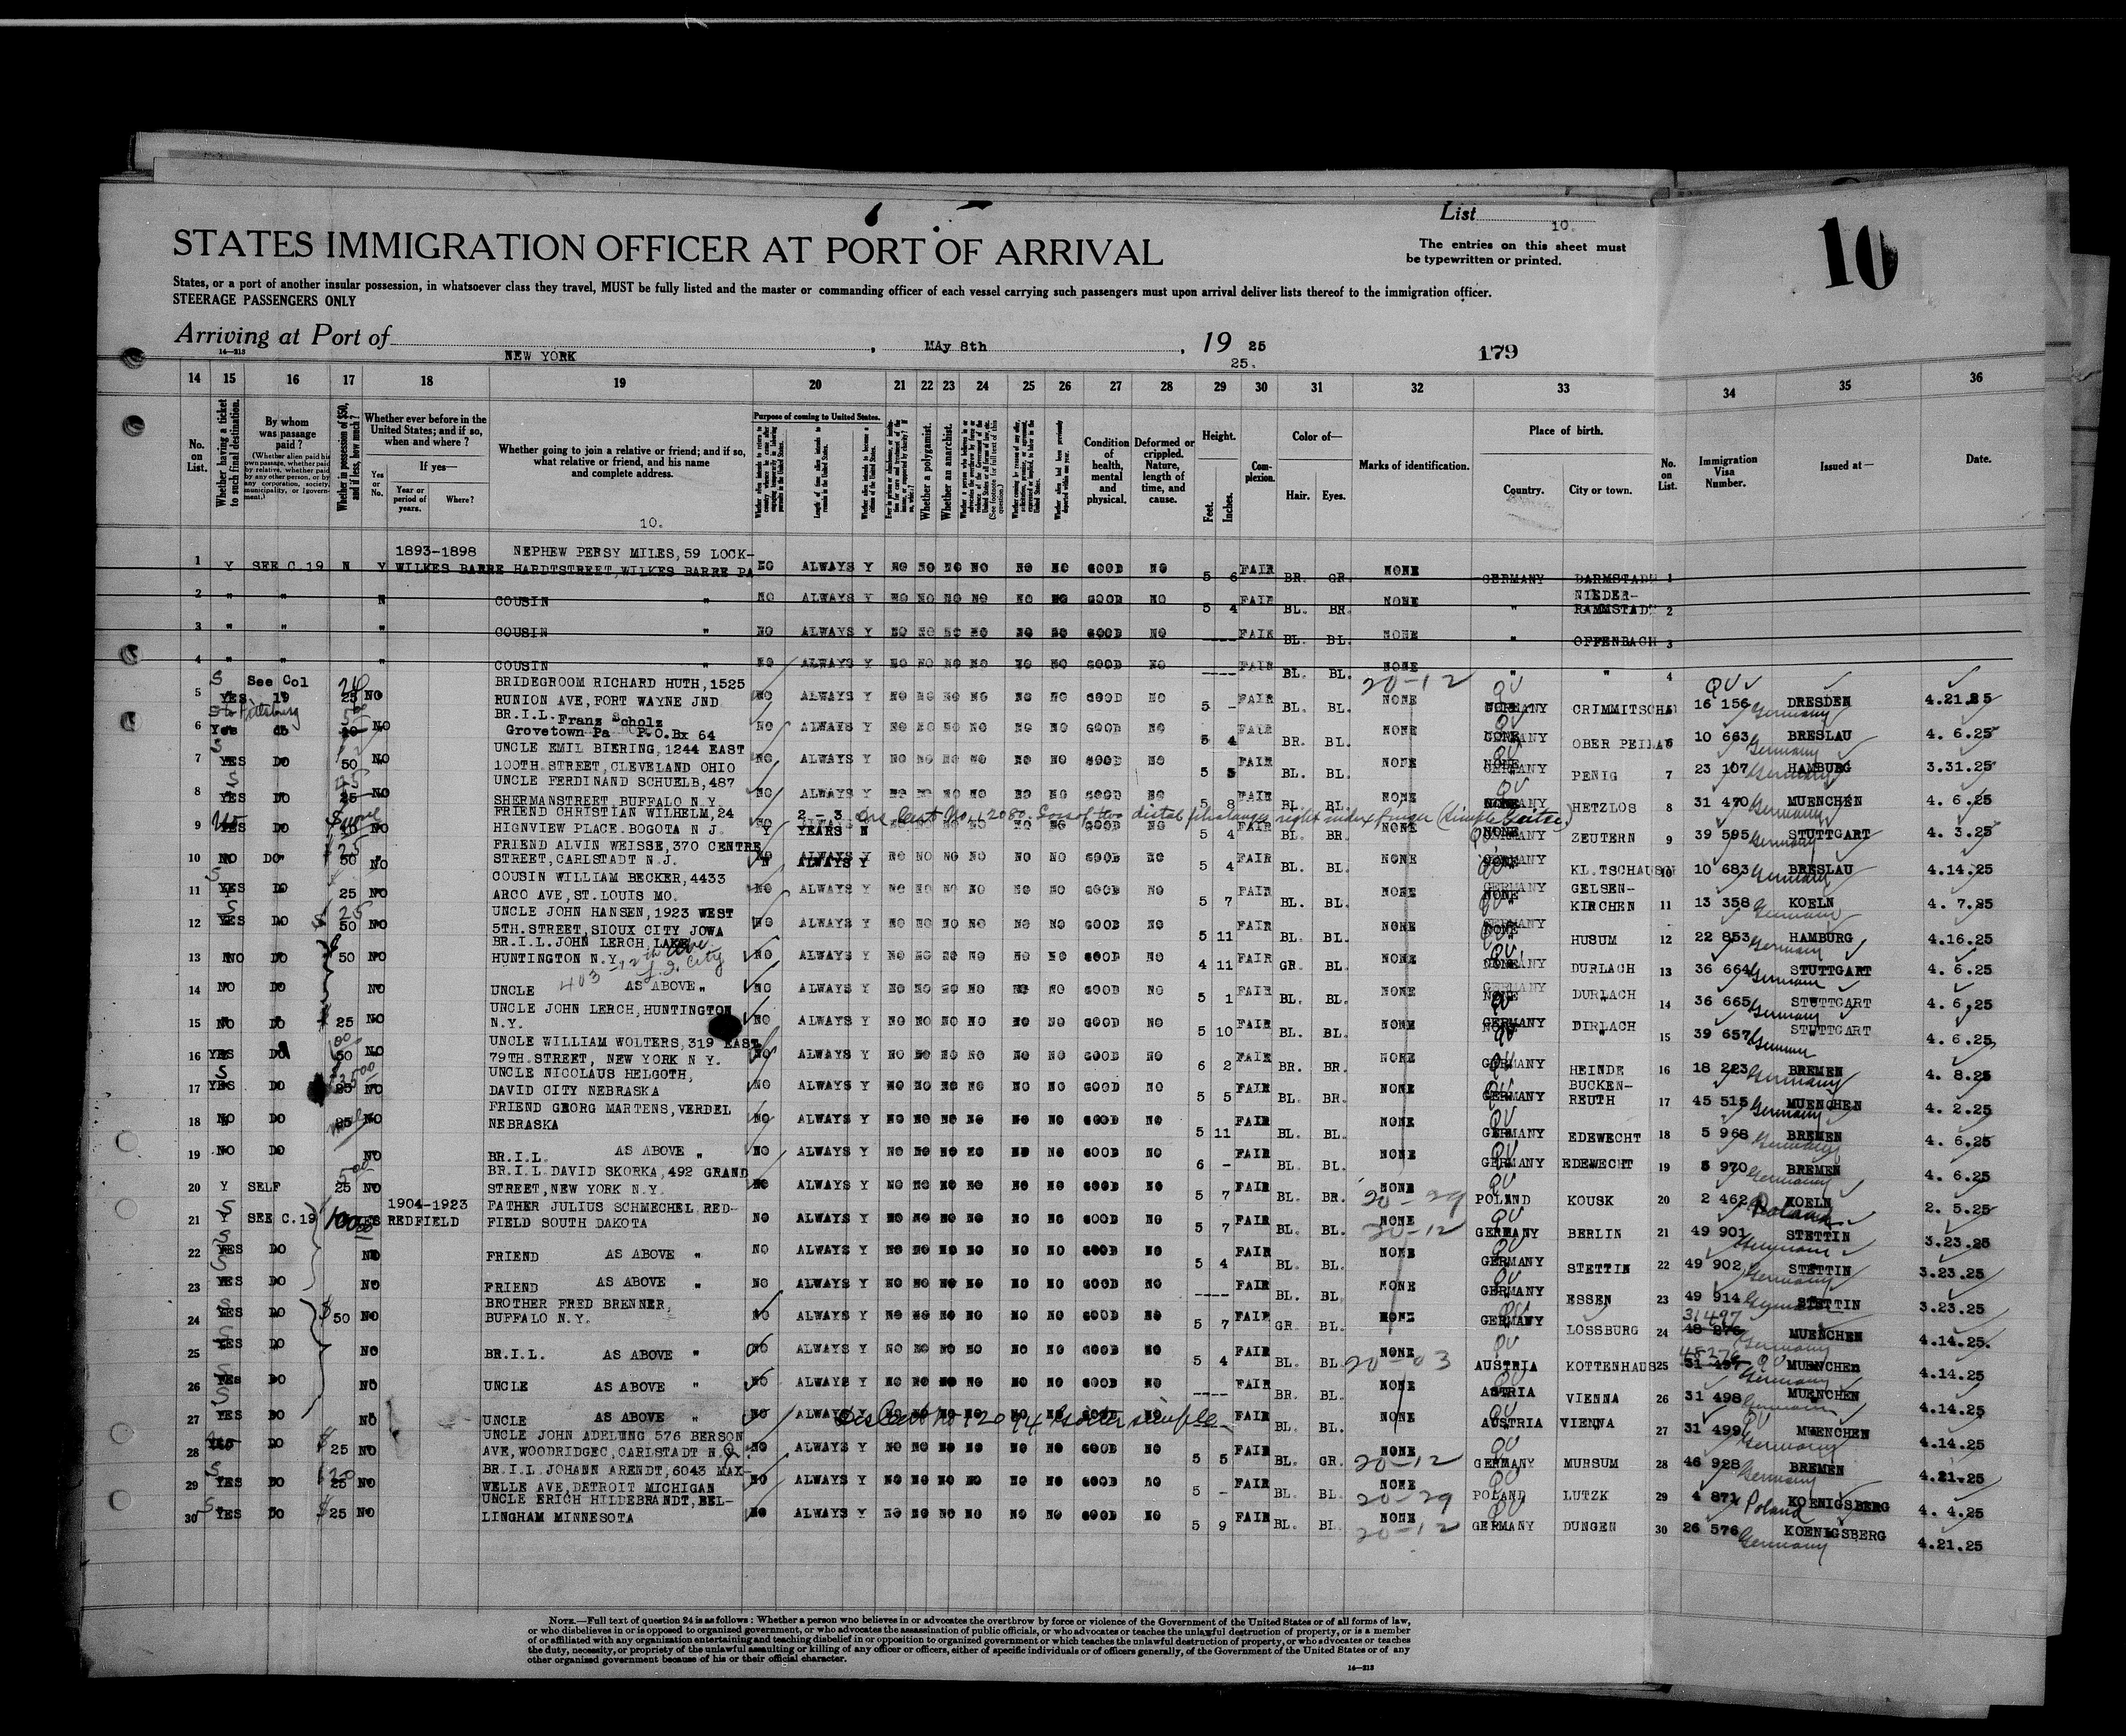 List 10.
10
STATES IMMIGRATION OFFICER AT PORT OF ARRIVAL
The entries on this sheet must
be typewritten or printed.
States, or a port of another insular possession, in whatsoever class they travel, MUST be fully listed and the master or commanding officer of each vessel carrying such passengers must upon arrival deliver lists thereof to the immigration officer.
STEERAGE PASSENGERS ONLY
Arriving at Port of NEW YORK, MAy 8th, 19 25
25.
179
14—213
14 15 16 17 18 19 20 21 22 23 24 25 26 27 28 29 30 31 32 33 34 35 36
No. on List.
Whether having a ticket to such final destination.
By whom was passage paid?
Whether in possession of $50, and if less, how much?
Whether ever before in the United States; and if so, when and where?
Yes or No.
If yes—
Year or period of years.
Where?
Whether going to join a relative or friend; and if so, what relative or friend, and his name and complete address.
10.
Purpose of coming to United States.
Whether a polygamist.
Whether an anarchist.
Condition of health, mental and physical.
Deformed or crippled. Nature, length of time, and cause.
Height.
Feet. Inches.
Complexion.
Color of—
Hair. Eyes.
Marks of identification.
Place of birth.
Country. City or town.
No. on List.
Immigration Visa Number.
Issued at—
Date.
1 Y SEE C.19 N Y 1893-1898 WILKES BARRE NEPHEW PERSY MILES, 59 LOCK-HARDTSTREET, WILKES BARRE PA NO ALWAYS Y NO NO NO NO NO NO GOOD NO 5 6 FAIR BR. GR. NONE GERMANY DARMSTADT 1
2 " " N COUSIN " NO ALWAYS Y NO NO NO NO NO NO GOOD NO 5 4 FAIR BL. BR. NONE " NIEDER-RAMMSTADT 2
3 " " " COUSIN " NO ALWAYS Y NO NO NO NO NO NO GOOD NO ---- FAIR BL. BL. NONE " OFFENBACH 3
4 " " " COUSIN " NO ALWAYS Y NO NO NO NO NO NO GOOD NO ---- FAIR BL. BL. NONE " " 4
5 YES See Col 19 25 NO BRIDEGROOM RICHARD HUTH, 1525 RUNION AVE, FORT WAYNE JND NO ALWAYS Y NO NO NO NO NO NO GOOD NO 5 - FAIR BL. BL. NONE 20-12 GERMANY CRIMMITSCHA 16 156 Germany DRESDEN 4.21.25
6 to Pittsburg Yes NO BR.I.L. Franz Scholz Grovetown Pa P.O.Bx 64 NO ALWAYS Y NO NO NO NO NO NO GOOD NO 5 4 FAIR BR. BL. NONE OBER PEILAU 10 663 Germany BRESLAU 4. 6.25
7 YES DO 50 NO UNCLE EMIL BIERING, 1244 EAST 100TH.STREET, CLEVELAND OHIO NO ALWAYS Y NO NO NO NO NO NO GOOD NO 5 5 FAIR BL. BL. NONE GERMANY PENIG 7 23 107 Germany HAMBURG 3.31.25
8 YES DO 25 NO UNCLE FERDINAND SCHUELB, 487 SHERMANSTREET, BUFFALO N.Y. NO ALWAYS Y NO NO NO NO NO NO GOOD NO 5 8 FAIR BL. BL. NONE HETZLOS 8 31 470 Germany MUENCHEN 4. 6.25
9 YES DO NO FRIEND CHRISTIAN WILHELM, 24 HIGNVIEW PLACE. BOGOTA N J. Y 2 - 3 YEARS N NO NO NO NO NO NO GOOD NO 5 4 FAIR BL. BR. NONE GERMANY ZEUTERN 9 39 595 Germany STUTTGART 4. 3.25
10 NO DO 50 NO FRIEND ALVIN WEISSE, 370 CENTRE STREET, CARLSTADT N.J. ALWAYS Y NO NO NO NO NO NO GOOD NO 5 4 FAIR BL. BL. NONE GERMANY KL.TSCHAUSN 10 10 683 Germany BRESLAU 4.14.25
11 YES DO 25 NO COUSIN WILLIAM BECKER, 4433 ARCO AVE, ST.LOUIS MO. NO ALWAYS Y NO NO NO NO NO NO GOOD NO 5 7 FAIR BL. BL. NONE GERMANY GELSEN-KIRCHEN 11 13 358 Germany KOELN 4. 7.25
12 YES DO 50 NO UNCLE JOHN HANSEN, 1923 WEST 5TH.STREET, SIOUX CITY JOWA NO ALWAYS Y NO NO NO NO NO NO GOOD NO 5 11 FAIR BL. BL. NONE GERMANY HUSUM 12 22 853 Germany HAMBURG 4.16.25
13 NO DO 50 NO BR.I.L. JOHN LERCH, LAKE HUNTINGTON N.Y. NO ALWAYS Y NO NO NO NO NO NO GOOD NO 4 11 FAIR GR. BL. NONE DURLACH 13 36 664 Germany STUTTGART 4. 6.25
403 - 12th Ave L.I. City
14 NO DO NO UNCLE AS ABOVE " NO ALWAYS Y NO NO NO NO NO NO GOOD NO 5 1 FAIR BL. BL. NONE GERMANY DURLACH 14 36 665 Germany STUTTGART 4. 6.25
15 NO DO 25 NO UNCLE JOHN LERCH, HUNTINGTON N.Y. NO ALWAYS Y NO NO NO NO NO NO GOOD NO 5 10 FAIR BL. BL. NONE GERMANY DIRLACH 15 39 657 STUTTGART 4. 6.25
16 YES DO 50 NO UNCLE WILLIAM WOLTERS, 319 EAST 79TH.STREET, NEW YORK N Y. NO ALWAYS Y NO NO NO NO NO NO GOOD NO 6 2 FAIR BR. BR. NONE GERMANY HEINDE 16 18 223 Germany BREMEN 4. 8.25
17 YES DO 25 NO UNCLE NICOLAUS HELGOTH, DAVID CITY NEBRASKA NO ALWAYS Y NO NO NO NO NO NO GOOD NO 5 5 FAIR BL. BR. NONE GERMANY BUCKEN-REUTH 17 45 515 Germany MUENCHEN 4. 2.25
18 NO DO 25 NO FRIEND GEORG MARTENS, VERDEL NEBRASKA NO ALWAYS Y NO NO NO NO NO NO GOOD NO 5 11 FAIR BL. BL. NONE GERMANY EDEWECHT 18 5 968 Germany BREMEN 4. 6.25
19 NO DO NO BR.I.L. AS ABOVE " NO ALWAYS Y NO NO NO NO NO NO GOOD NO 6 - FAIR BL. BL. NONE GERMANY EDEWECHT 19 5 970 Germany BREMEN 4. 6.25
20 Y SELF 25 NO BR.I.L. DAVID SKORKA, 492 GRAND STREET, NEW YORK N.Y. NO ALWAYS Y NO NO NO NO NO NO GOOD NO 5 7 FAIR BL. BR. NONE 20-29 POLAND KOUSK 20 2 462 Poland KOELN 2. 5.25
21 Y SEE C.19 YES 1904-1923 REDFIELD FATHER JULIUS SCHMECHEL, RED-FIELD SOUTH DAKOTA NO ALWAYS Y NO NO NO NO NO NO GOOD NO 5 7 FAIR BL. BL. NONE 20-12 GERMANY BERLIN 21 49 901 Germany STETTIN 3.23.25
22 YES DO NO FRIEND AS ABOVE " NO ALWAYS Y NO NO NO NO NO NO GOOD NO 5 4 FAIR BL. BL. NONE GERMANY STETTIN 22 49 902 Germany STETTIN 3.23.25
23 YES DO NO FRIEND AS ABOVE " NO ALWAYS Y NO NO NO NO NO NO GOOD NO ---- FAIR BL. BL. NONE GERMANY ESSEN 23 49 914 Germany STETTIN 3.23.25
24 YES DO $50 NO BROTHER FRED BRENNER, BUFFALO N.Y. NO ALWAYS Y NO NO NO NO NO NO GOOD NO 5 7 FAIR GR. BL. NONE GERMANY LOSSBURG 24 31497 48 276 Germany MUENCHEN 4.14.25.
25 YES DO NO BR.I.L. AS ABOVE " NO ALWAYS Y NO NO NO NO NO NO GOOD NO 5 4 FAIR BL. BL. NONE 20-03 AUSTRIA KOTTENHAUS 25 48276 31 497 Germany MUENCHEN 4.14.25
26 YES DO NO UNCLE AS ABOVE " NO ALWAYS Y NO NO NO NO NO NO GOOD NO ---- FAIR BR. BL. NONE AUSTRIA VIENNA 26 31 498 Germany MUENCHEN 4.14.25
27 YES DO NO UNCLE AS ABOVE " NO ALWAYS Y NO NO NO NO NO NO GOOD NO FAIR BL. BL. NONE AUSTRIA VIENNA 27 31 499 Germany MUENCHEN 4.14.25
28 YES DO $25 NO UNCLE JOHN ADELUNG 576 BERSON AVE, WOODRIDGEC, CARLSTADT N.J. NO ALWAYS Y NO NO NO NO NO NO GOOD NO 5 5 FAIR BL. GR. NONE 20-12 GERMANY MURSUM 28 46 928 Germany BREMEN 4.21.25
29 YES DO 25 NO BR.I.L. JOHANN ARENDT, 6043 MAX-WELLE AVE, DETROIT MICHIGAN NO ALWAYS Y NO NO NO NO NO NO GOOD NO 5 - FAIR BL. BL. NONE 20-29 POLAND LUTZK 29 4 871 Poland KOENIGSBERG 4. 4.25
30 YES DO $25 NO UNCLE ERICH HILDEBRANDT, BEL-LINGHAM MINNESOTA NO ALWAYS Y NO NO NO NO NO NO GOOD NO 5 9 FAIR BL. BL. NONE 20-12 GERMANY DUNGEN 30 26 576 Germany KOENIGSBERG 4.21.25
NOTE.—Full text of question 24 is as follows: Whether a person who believes in or advocates the overthrow by force or violence of the Government of the United States or of all forms of law,
or who disbelieves in or is opposed to organized government, or who advocates the assassination of public officials, or who advocates or teaches the unlawful destruction of property, or is a member
of or affiliated with any organization entertaining and teaching disbelief in or opposition to organized government or which teaches the unlawful destruction of property, or who advocates or teaches
the duty, necessity, or propriety of the unlawful assaulting or killing of any officer or officers, either of specific individuals or of officers generally, of the Government of the United States or of any
other organized government because of his or their official character.
14—213